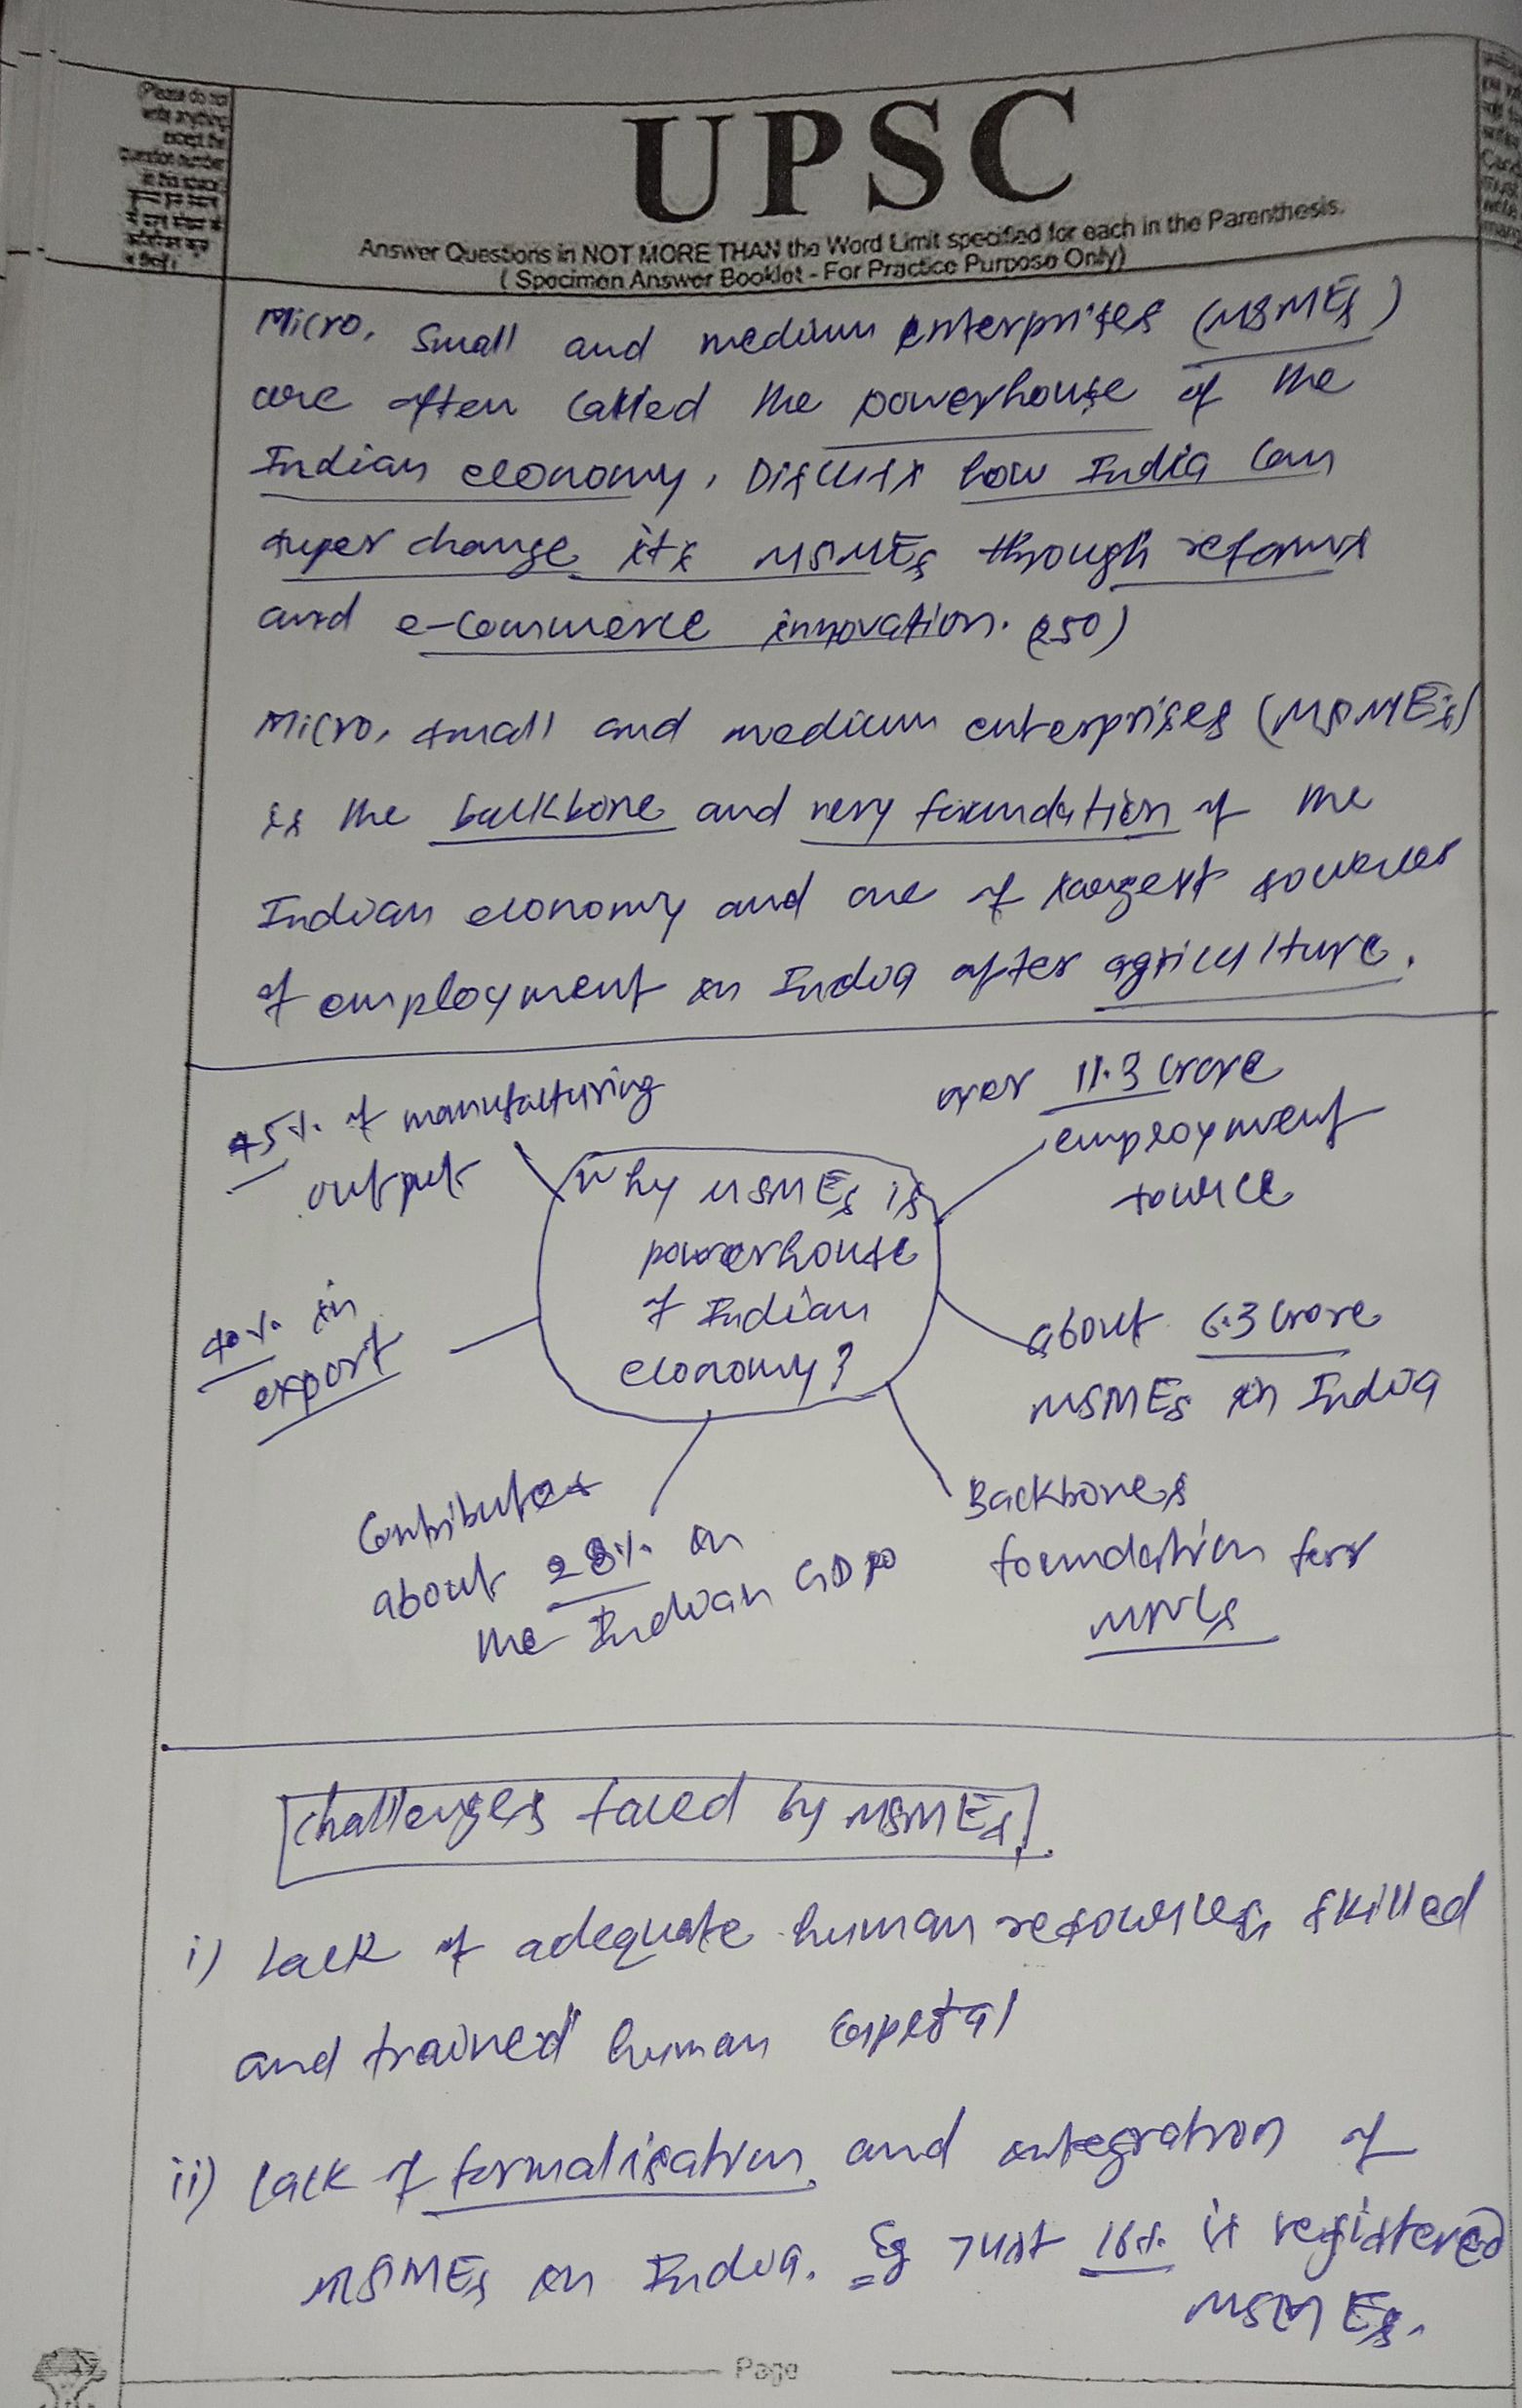 (Please do not
write anything
except the
question number
in this space)
UPSC
Answer Questions in NOT MORE THAN the Word Limit specified for each in the Parenthesis.
( Specimen Answer Booklet - For Practice Purpose Only)
Micro, Small and medium enterprises (MSMEs)
are often called the powerhouse of the
Indian economy. Discuss how India can
super change its MSMEs through reforms
and e-commerce innovation. (250)
Micro, small and medium enterprises (MSMEs)
is the backbone and very foundation of the
Indian economy and one of largest sources
of employment in India after agriculture.
45% of manufacturing
output
over 11.3 crore
employment
source
Why MSMEs is
powerhouse
of Indian
economy?
40% in
export
about 6.3 crore
MSMEs in India
Contributes
about 28% in
the Indian GDP
Backbones
foundation for
MNCs
Challenges faced by MSMEs.
i) Lack of adequate human resources, skilled
and trained human capital
ii) Lack of formalisation and integration of
MSMEs in India. Eg Just 16% is registered
MSMEs.
Page